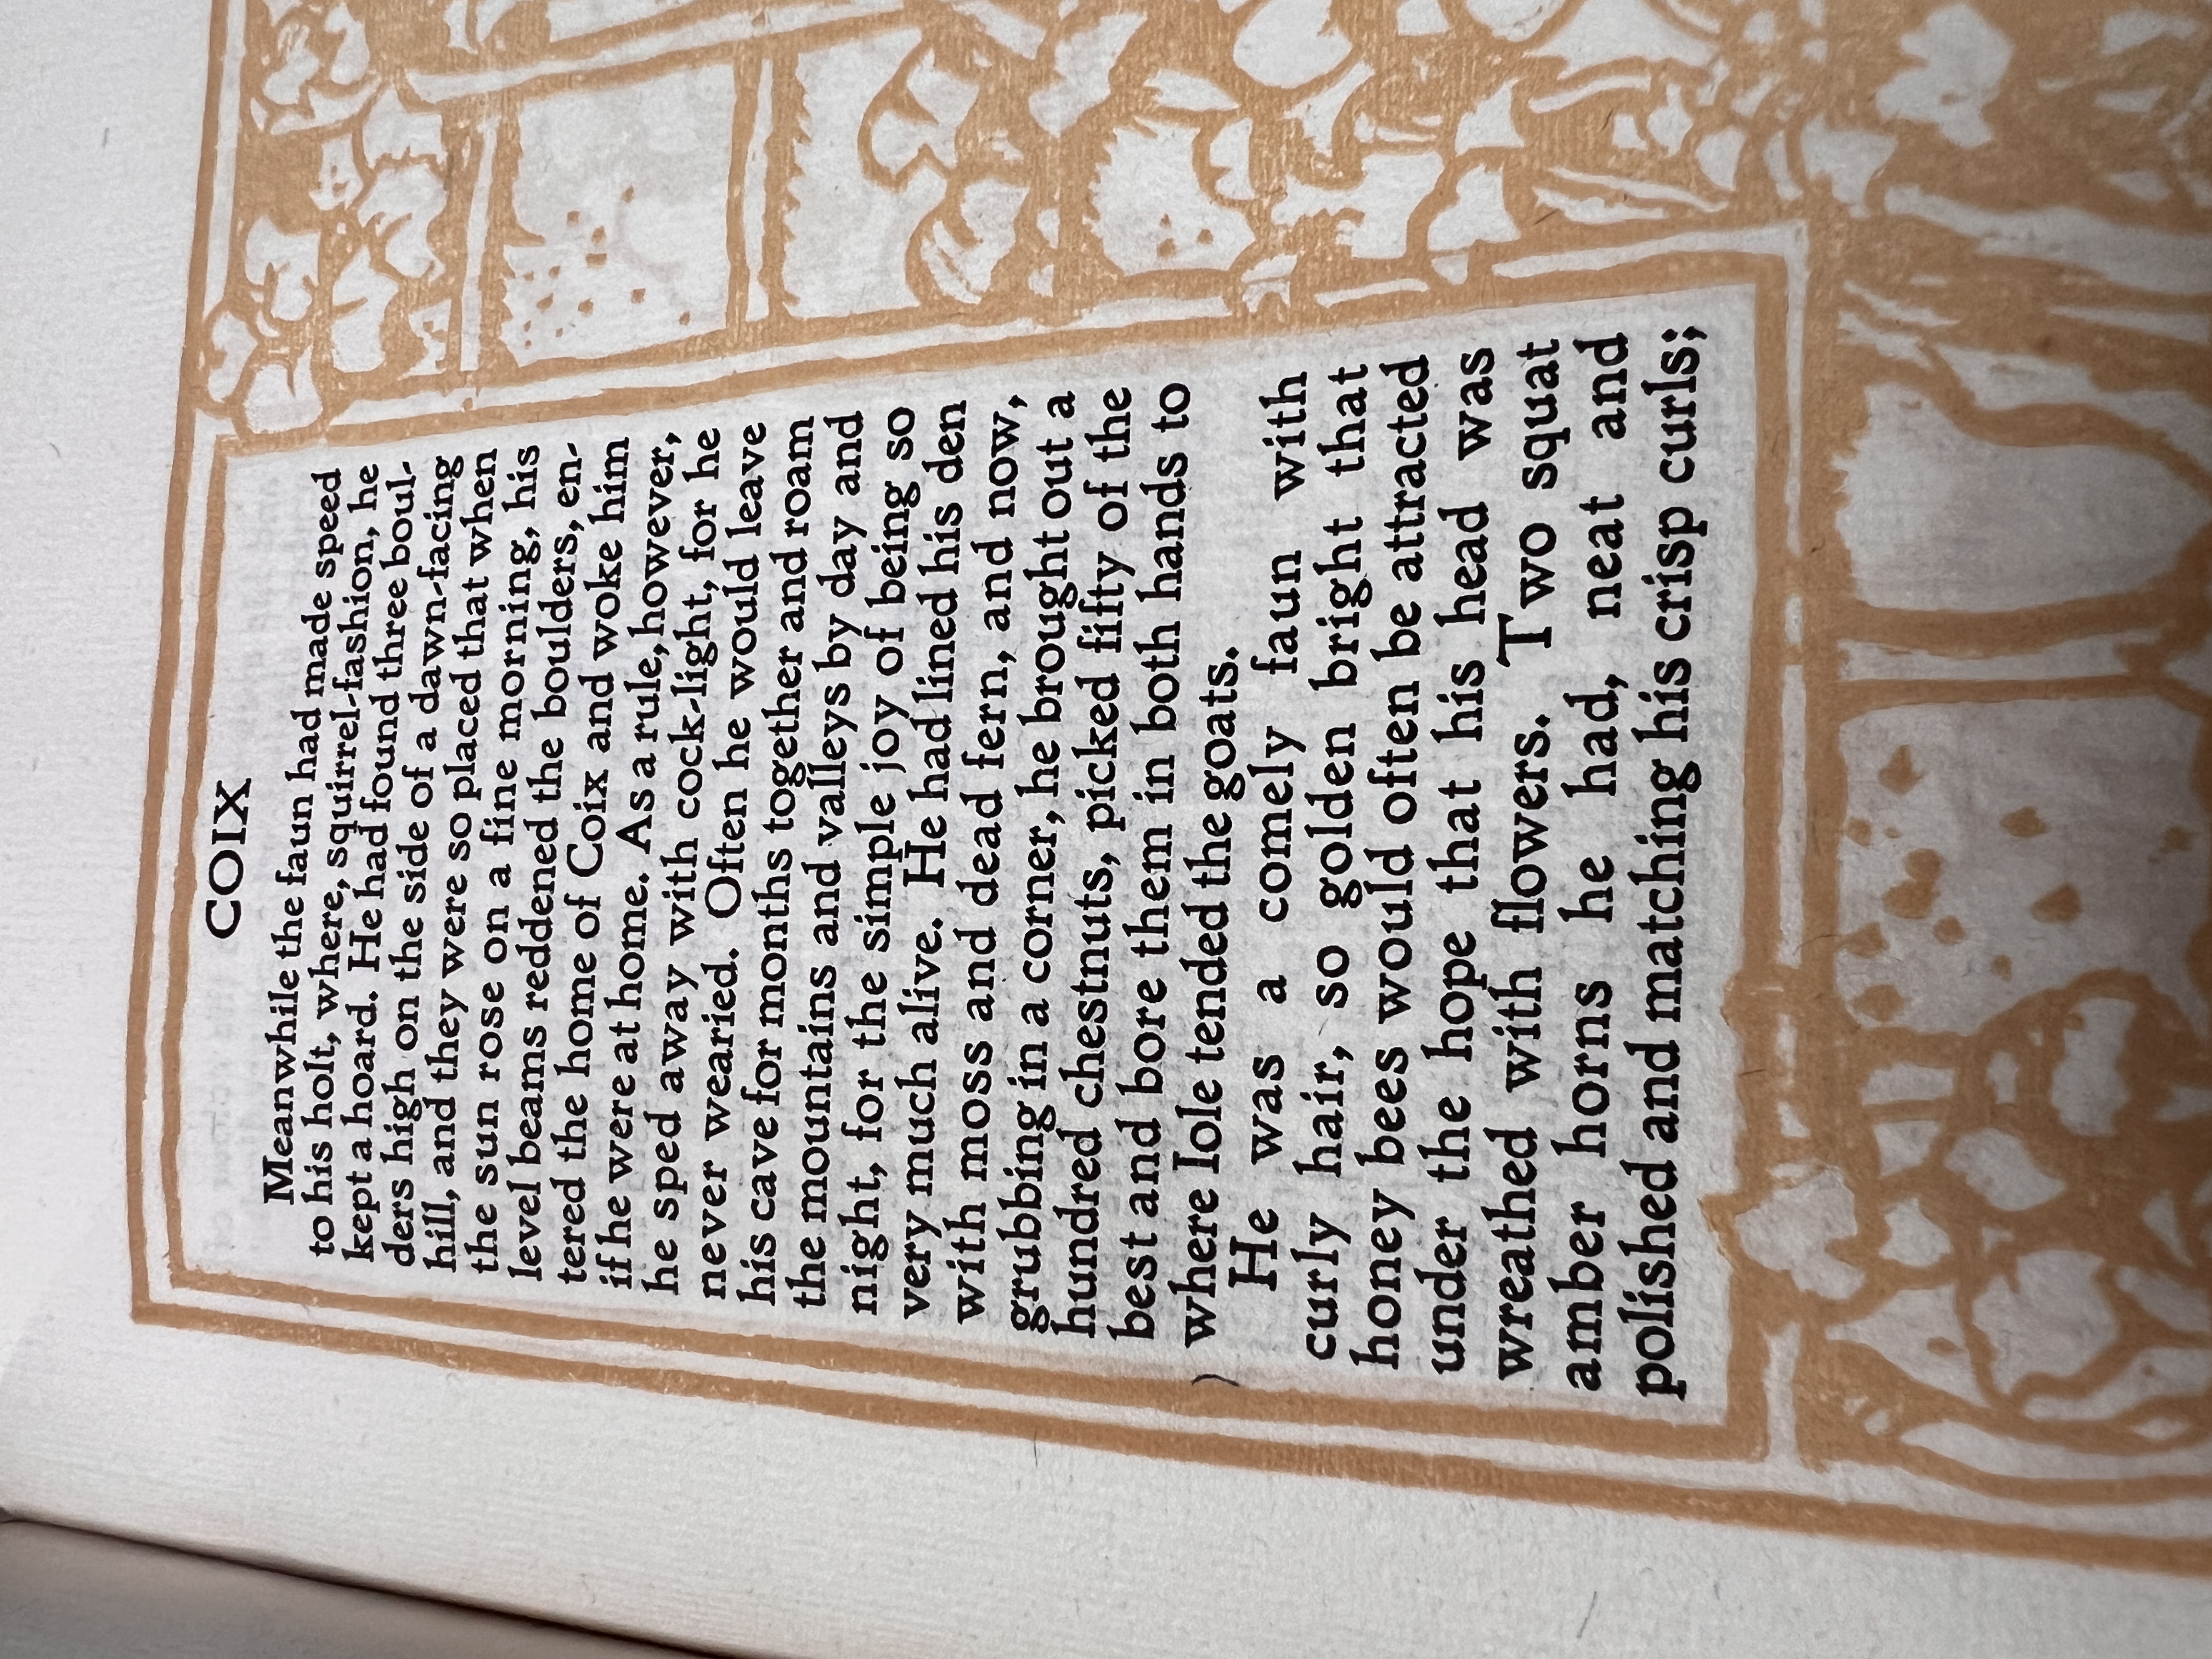 COIX
Meanwhile the faun had made speed
to his holt, where, squirrel-fashion, he
kept a hoard. He had found three boul-
ders high on the side of a dawn-facing
hill, and they were so placed that when
the sun rose on a fine morning, his
level beams reddened the boulders, en-
tered the home of Coix and woke him
if he were at home. As a rule, however,
he sped away with cock-light, for he
never wearied. Often he would leave
his cave for months together and roam
the mountains and valleys by day and
night, for the simple joy of being so
very much alive. He had lined his den
with moss and dead fern, and now,
grubbing in a corner, he brought out a
hundred chestnuts, picked fifty of the
best and bore them in both hands to
where Iole tended the goats.
He was a comely faun with
curly hair, so golden bright that
honey bees would often be attracted
under the hope that his head was
wreathed with flowers. Two squat
amber horns he had, neat and
polished and matching his crisp curls;